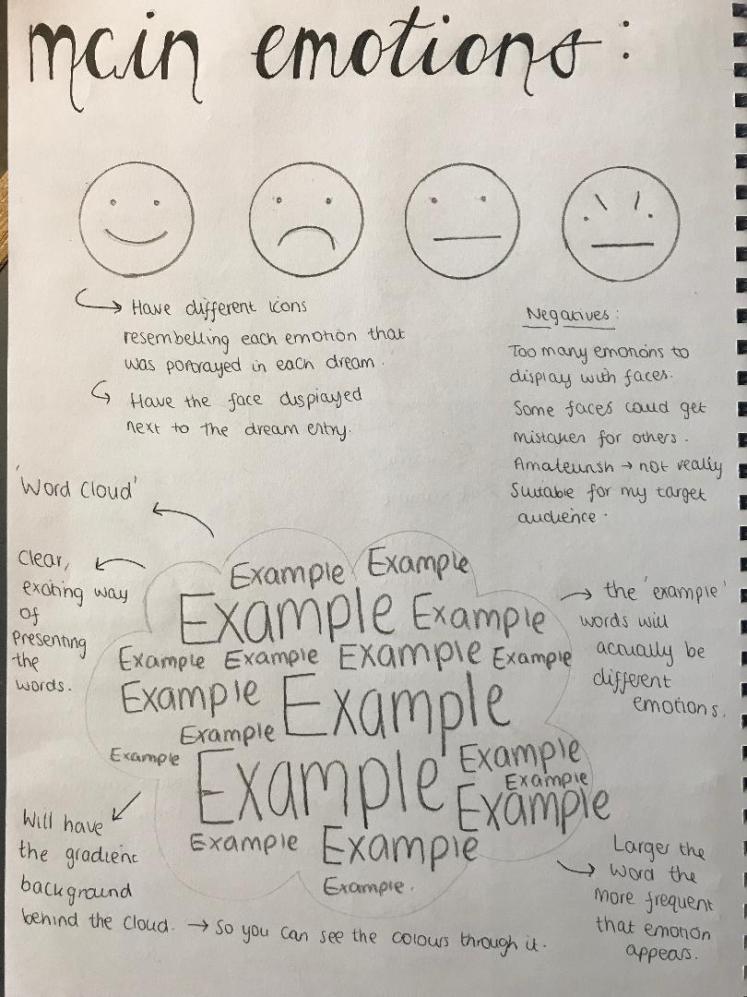 main emotions:
→ Have different icons
resembelling each emotion that
was portrayed in each dream.
→ Have the face displayed
next to the dream entry.
Negatives:
Too many emotions to
display with faces.
Some faces could get
mistaken for others.
Amateurish → not really
suitable for my target
audience.
'Word Cloud'
Clear,
exciting way
of
presenting
the
words.
Example Example
Example Example
Example Example Example Example
Example Example
Example
Example Example Example
Example
Example
Example Example
Example.
→ the 'example'
words will
actually be
different
emotions.
Will have
the gradient
background
behind the cloud. → So you can see the colours through it.
Larger the
word the
more frequent
that emotion
appears.